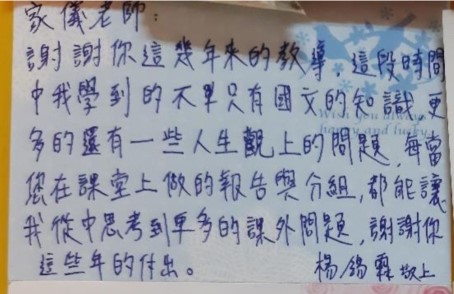 家儀老師：
謝謝你這幾年來的教導，這段時間
中我學到的不單只有國文的知識，更
多的還有一些人生觀上的問題，每當
您在課堂上做的報告與分組，都能讓
我從中思考到更多的課外問題，謝謝你
這些年的付出。
楊錫霖 敬上
Wish you always
happy and lucky